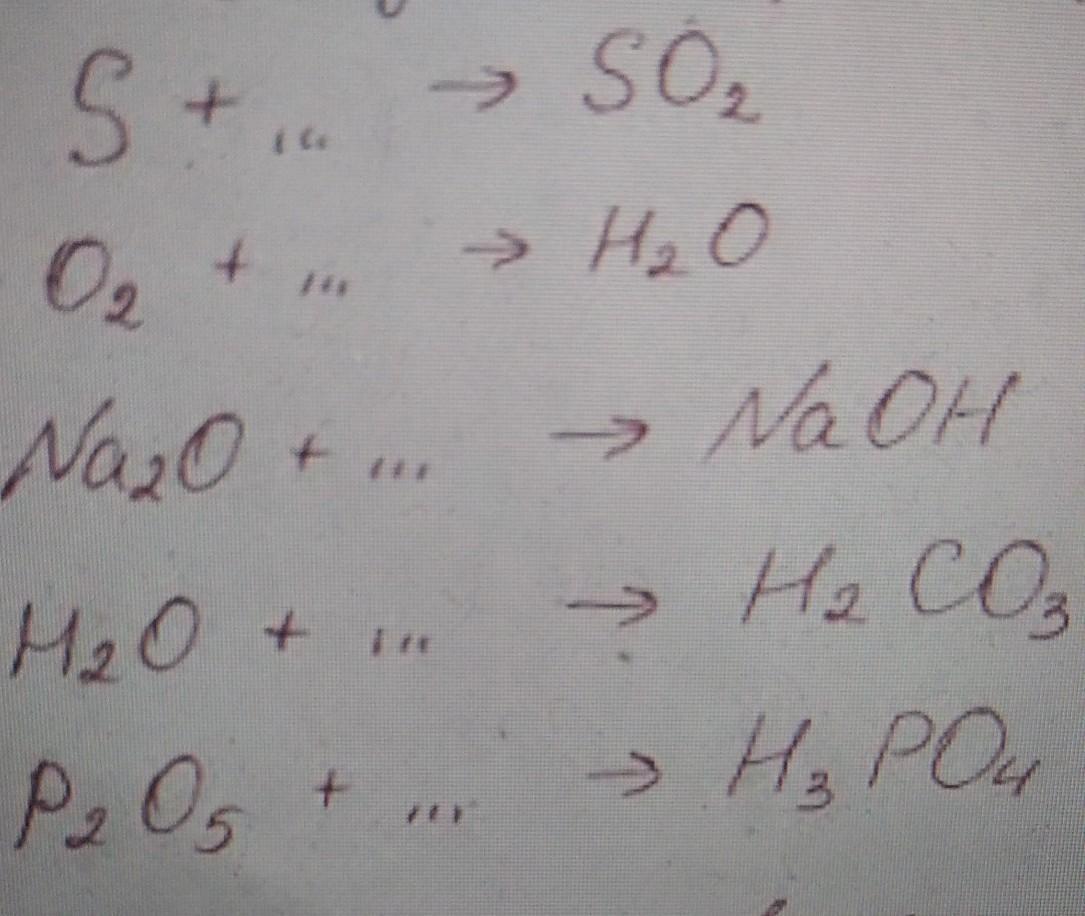 S + ... → SO₂
O₂ + ... → H₂O
Na₂O + ... → NaOH
H₂O + ... → H₂CO₃
P₂O₅ + ... → H₃PO₄